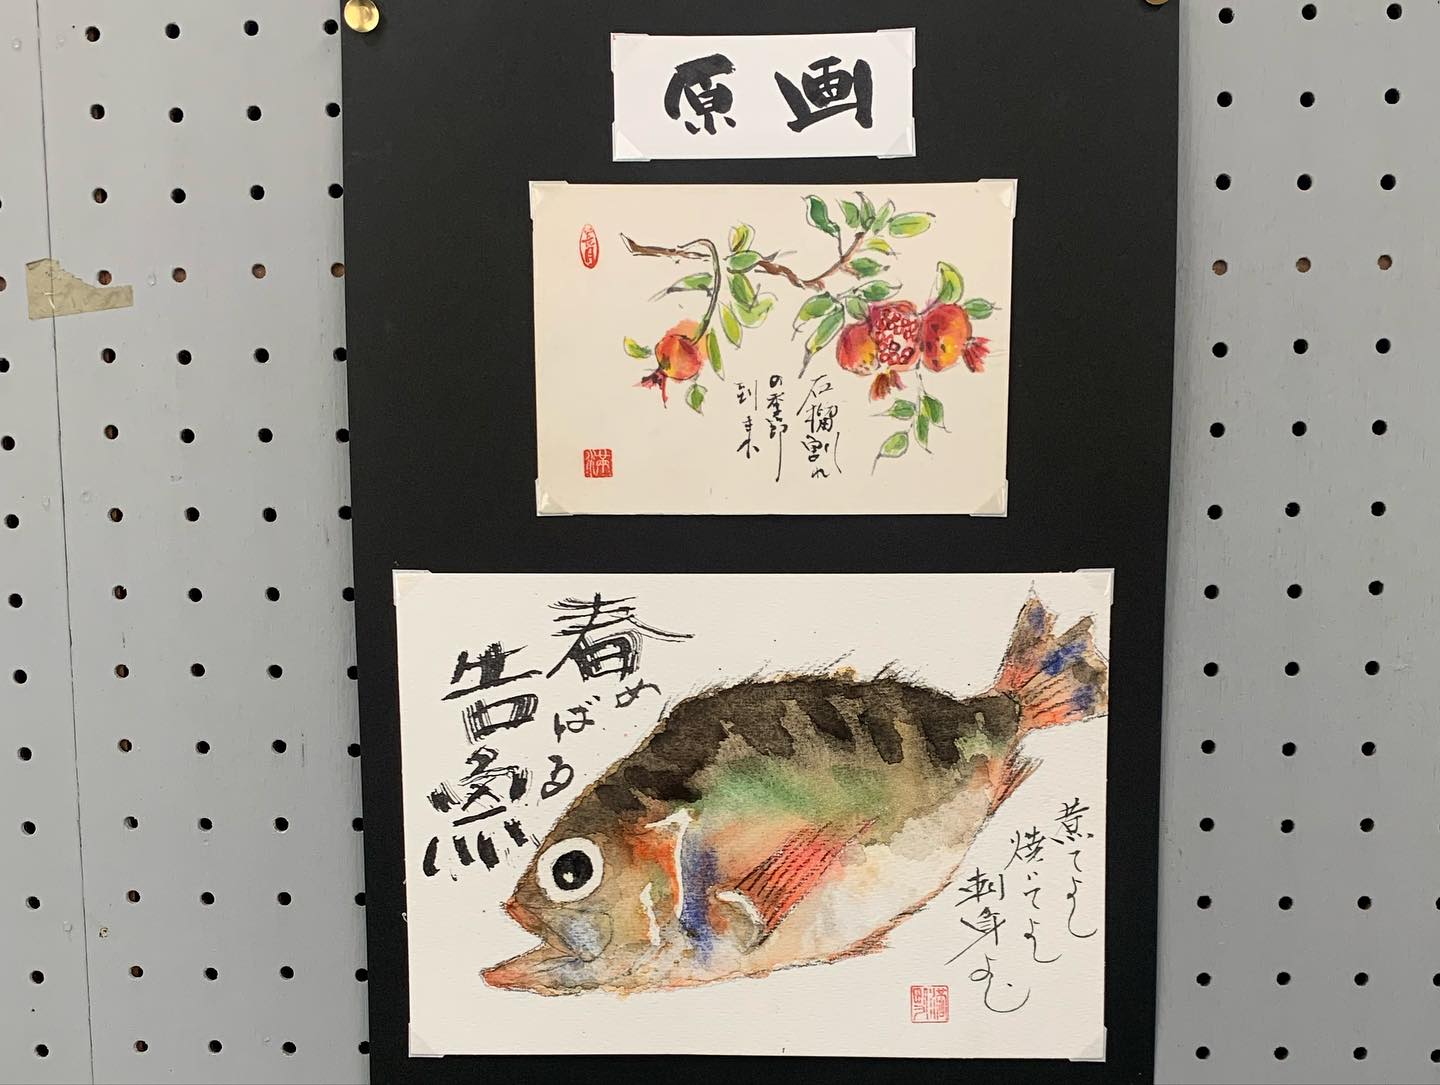 原画
石榴割れ
の季節
到来
春めばる
告魚
煮てよし
焼いてよし
刺身よし